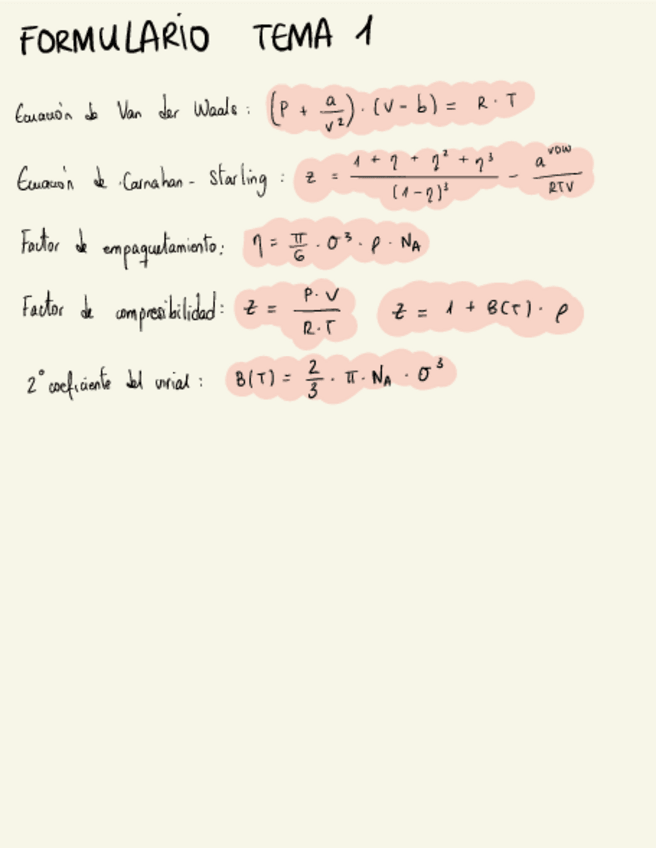 FORMULARIO TEMA 1
Ecuación de Van der Waals: (P + a/v²) · (v - b) = R · T
Ecuación de Carnahan - Starling: z = (1 + η + η² + η³)/(1 - η)³ - a^VDW/RTV
Factor de empaquetamiento: η = π/6 · σ³ · ρ · NA
Factor de compresibilidad: z = P · V/R · T z = 1 + B(T) · ρ
2º coeficiente del virial: B(T) = 2/3 · π · NA · σ³